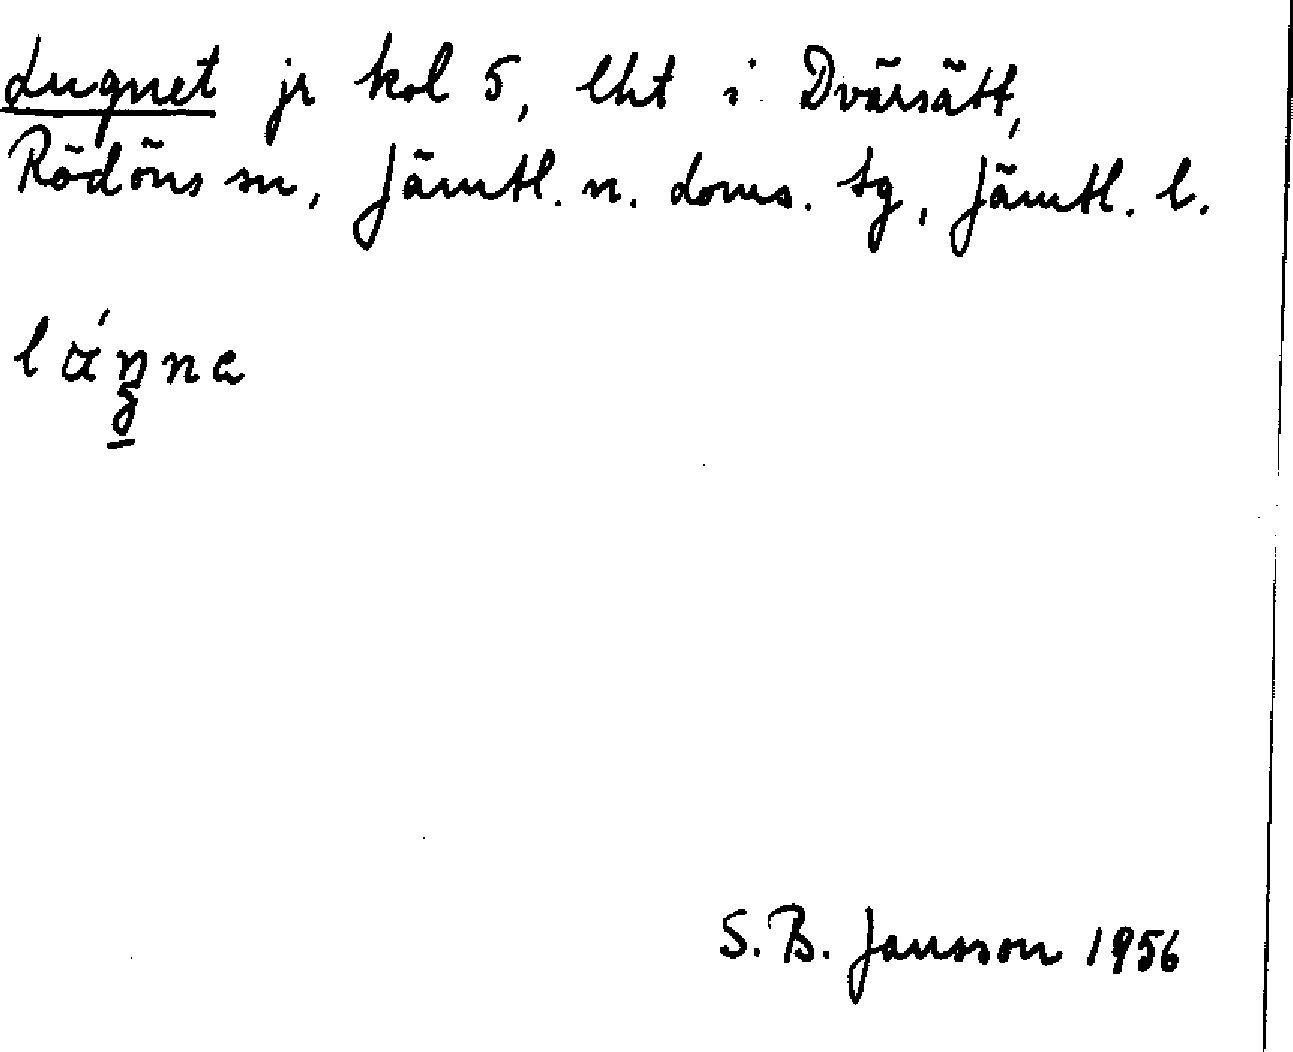 Lugnet jr kol 5, lht i Dvärsätt,
Rödöns sn, Jämtl. n. doms. tg, Jämtl. l.
S. B. Jansson 1956